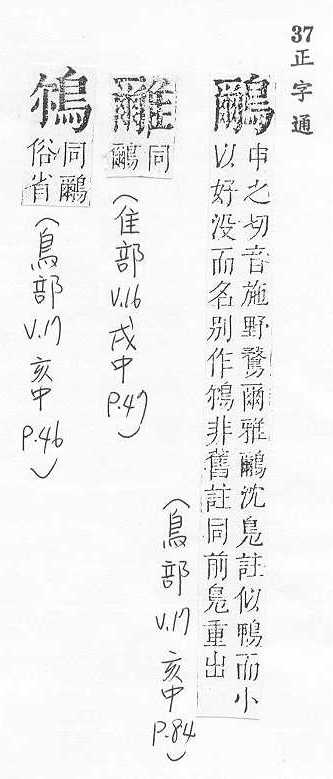 37
正字通
鸍
申之切音施野鶩爾雅鸍沈鳧註似鴨而小
以好没而名别作䳐非舊註同前鳧重出
(鳥部 V.17 亥中 P.84)
同
鸍
(隹部 V.16 戌中 P.47)
䳐
同鸍
俗省
(鳥部 V.17 亥中 P.46)